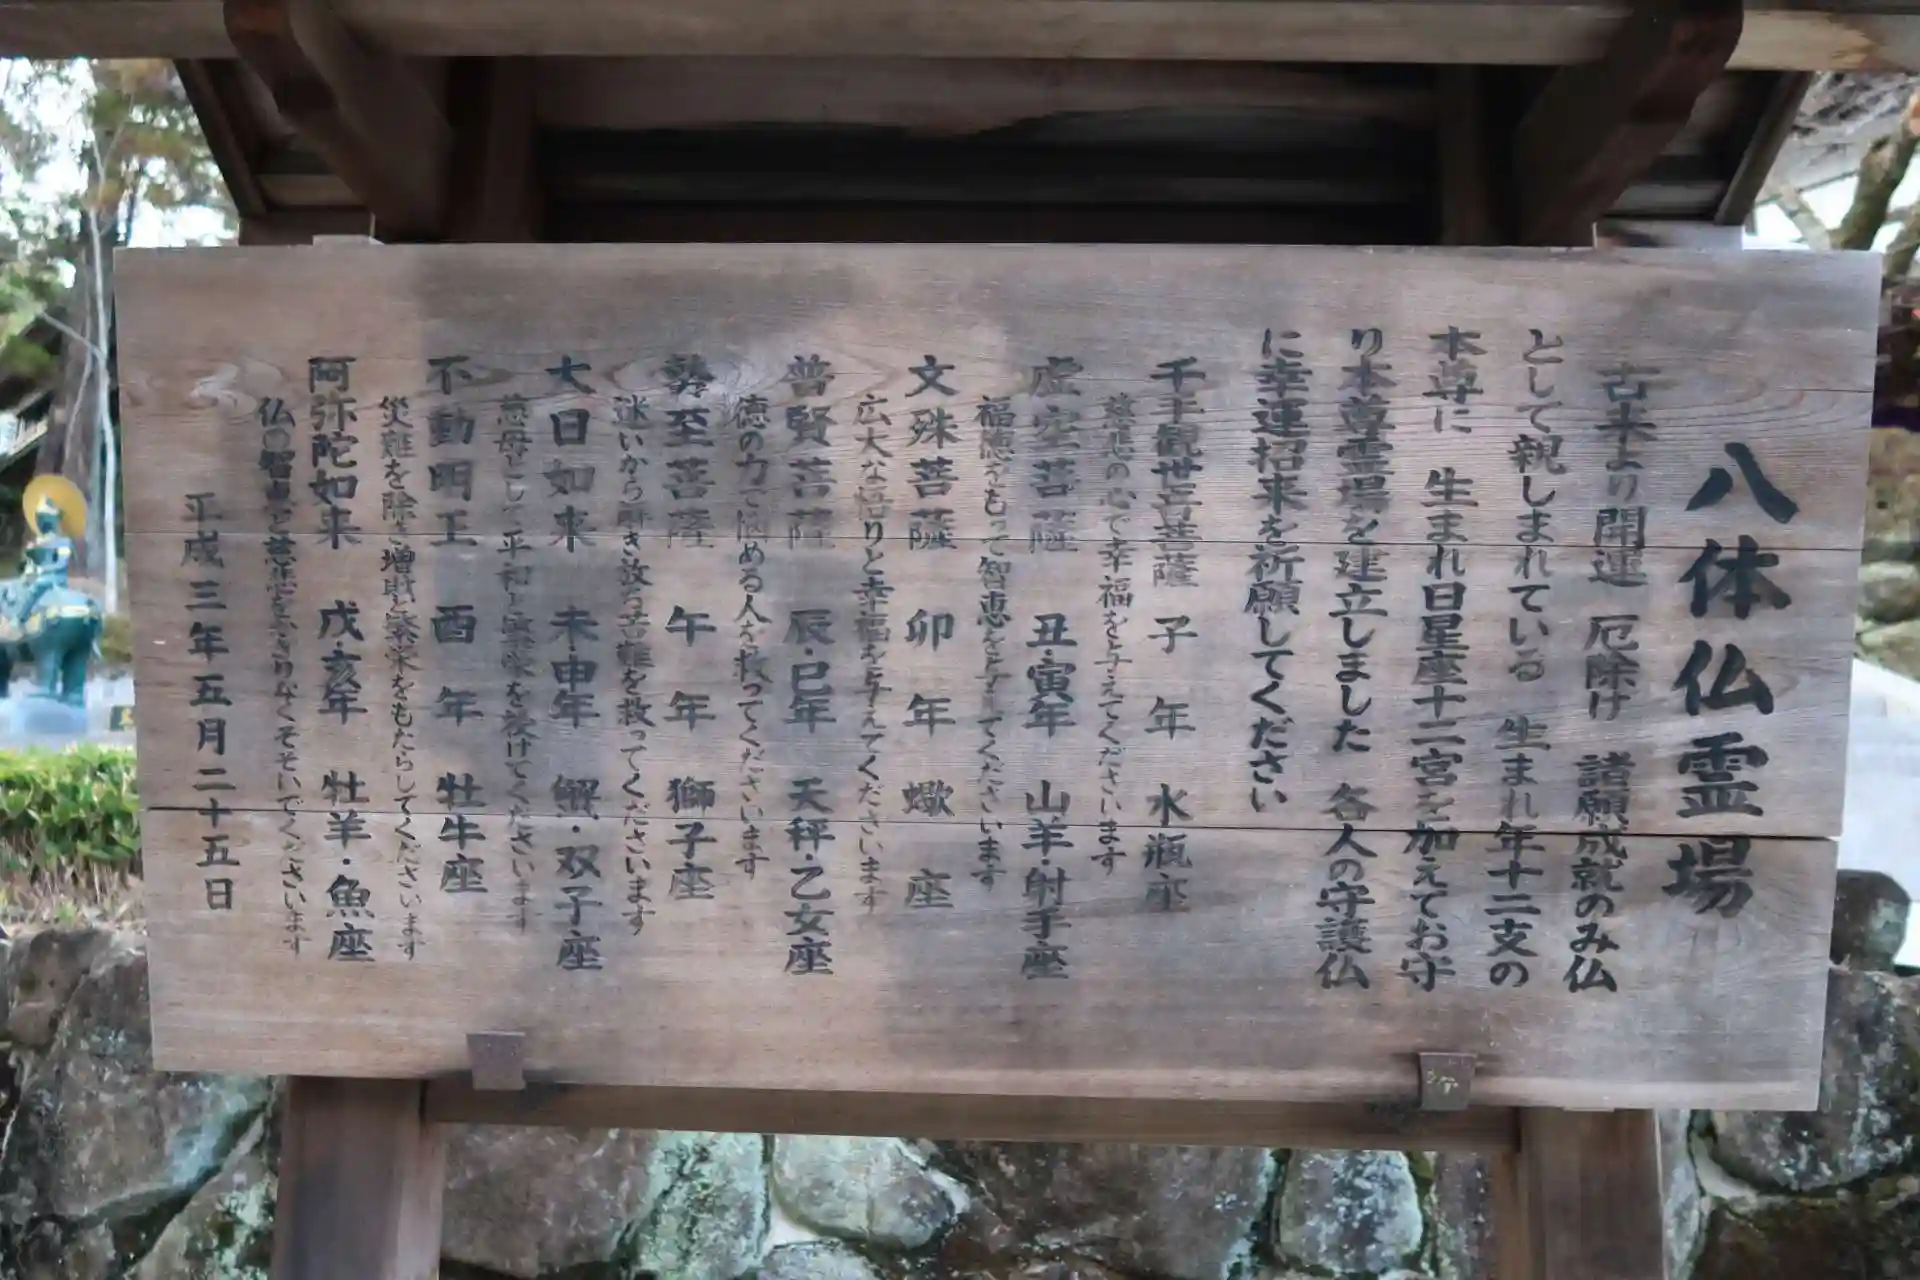 八体仏霊場
古来より開運 厄除け 諸願成就のみ仏
として親しまれている 生まれ年十二支の
本尊に 生まれ日星座十二宮を加えてお守
り本尊霊場を建立しました 各人の守護仏
に幸運招来を祈願してください
千手観世音菩薩 子年 水瓶座
慈悲の心で幸福を与えてくださいます
虚空菩薩 丑・寅年 山羊・射手座
福徳をもって智恵を与えてくださいます
文殊菩薩 卯年 蠍座
広大な悟りと幸福を与えてくださいます
普賢菩薩 辰・巳年 天秤・乙女座
徳の力で悩める人を救ってくださいます
勢至菩薩 午年 獅子座
迷いから解き放ち苦難を救ってくださいます
大日如来 未・申年 蟹・双子座
慈母として平和と を授けてくださいます
不動明王 酉年 牡牛座
災難を除き増財と繁栄をもたらしてくださいます
阿弥陀如来 戌・亥年 牡羊・魚座
仏の智恵と慈悲をかぎりなくそそいでくださいます
平成三年五月二十五日